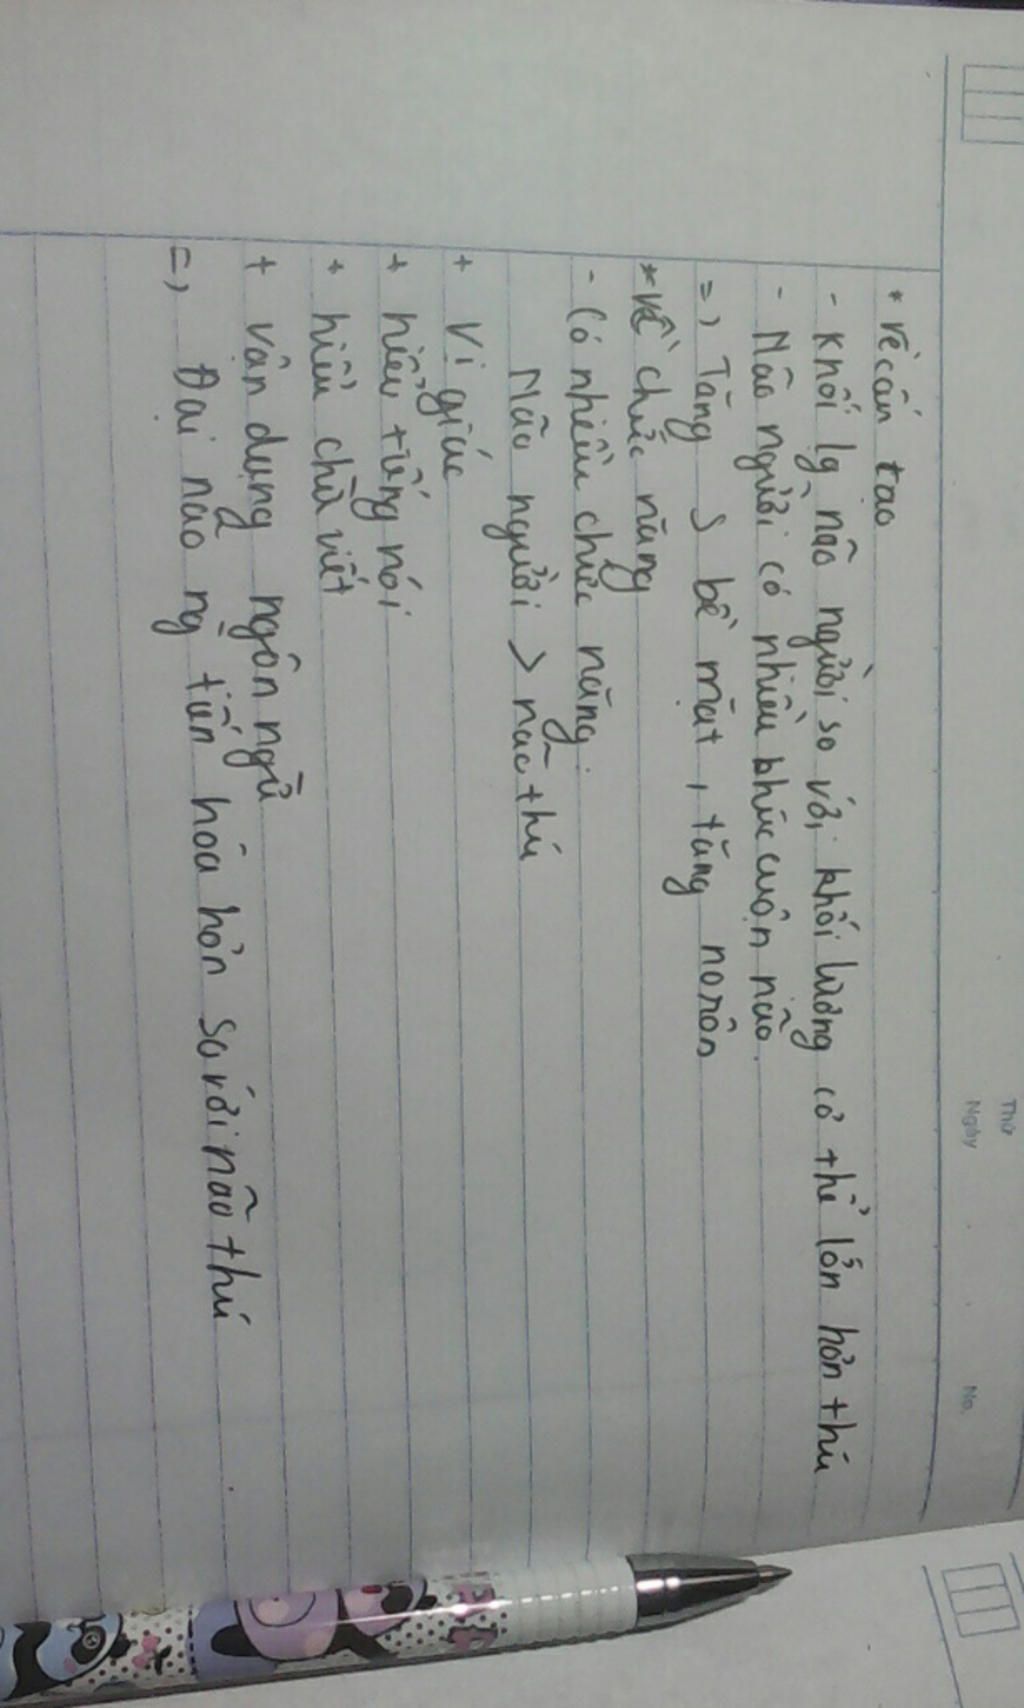 Thứ
Ngày
No.
* Về cấu tạo
- Khối lg não người so với khối lượng cơ thể lớn hơn thú
- Não người có nhiều khúc cuộn não.
=> Tăng S bề mặt, tăng nơron
* Về chức năng
- Có nhiều chức năng:
Não người > não thú
+ Vị giác
+ hiểu tiếng nói
+ hiểu chữ viết
+ vận dụng ngôn ngữ
=> Đại não ng tiến hóa hơn so với não thú